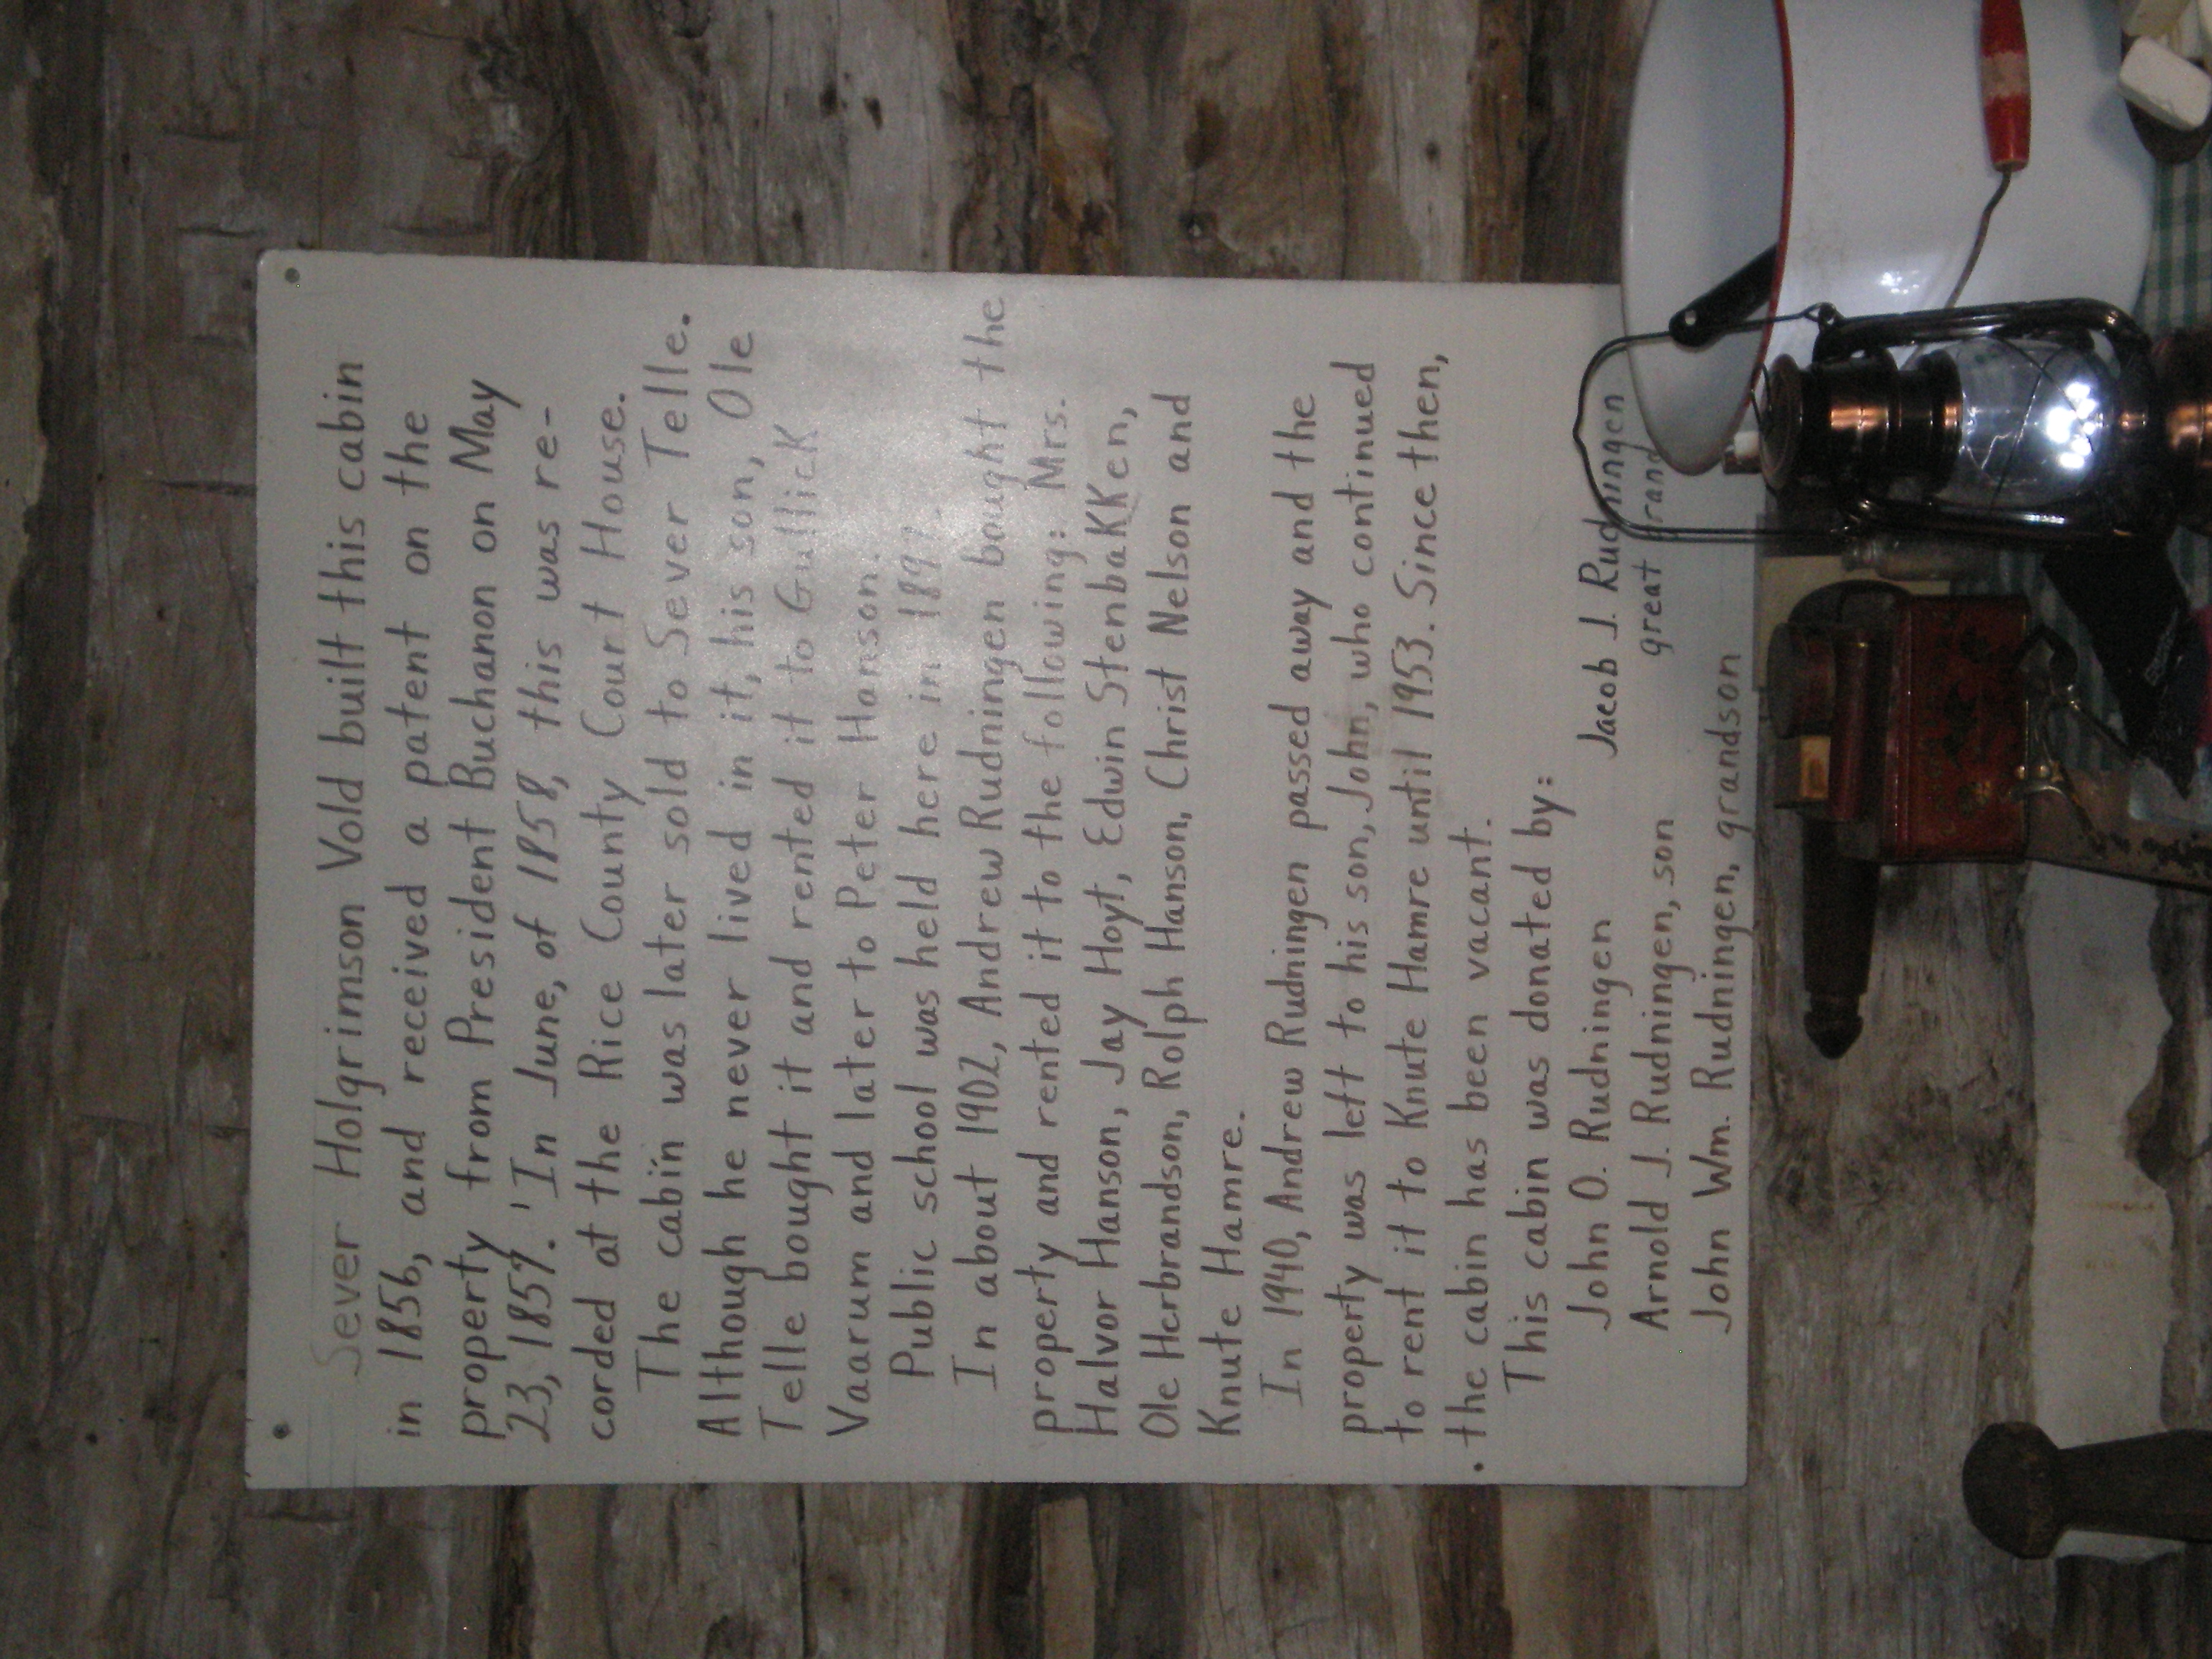 Sever Holgrimson Vold built this cabin
in 1856, and received a patent on the
property from President Buchanon on May
23, 1859.' In June, of 1858, this was re-
corded at the Rice County Court House.
The cabin was later sold to Sever Telle.
Although he never lived in it, his son, Ole
Telle bought it and rented it to Gullick
Vaarum and later to Peter Hanson.
Public school was held here in
In about 1902, Andrew Rudningen bought the
property and rented it to the following: Mrs.
Halvor Hanson, Jay Hoyt, Edwin Stenbakken,
Ole Herbrandson, Rolph Hanson, Christ Nelson and
Knute Hamre.
In 1940, Andrew Rudningen passed away and the
property was left to his son, John, who continued
to rent it to Knute Hamre until 1953. Since then,
the cabin has been vacant.
This cabin was donated by:
John O. Rudningen
Arnold J. Rudningen, son
John Wm. Rudningen, grandson
Jacob J. Rudningen
great grand